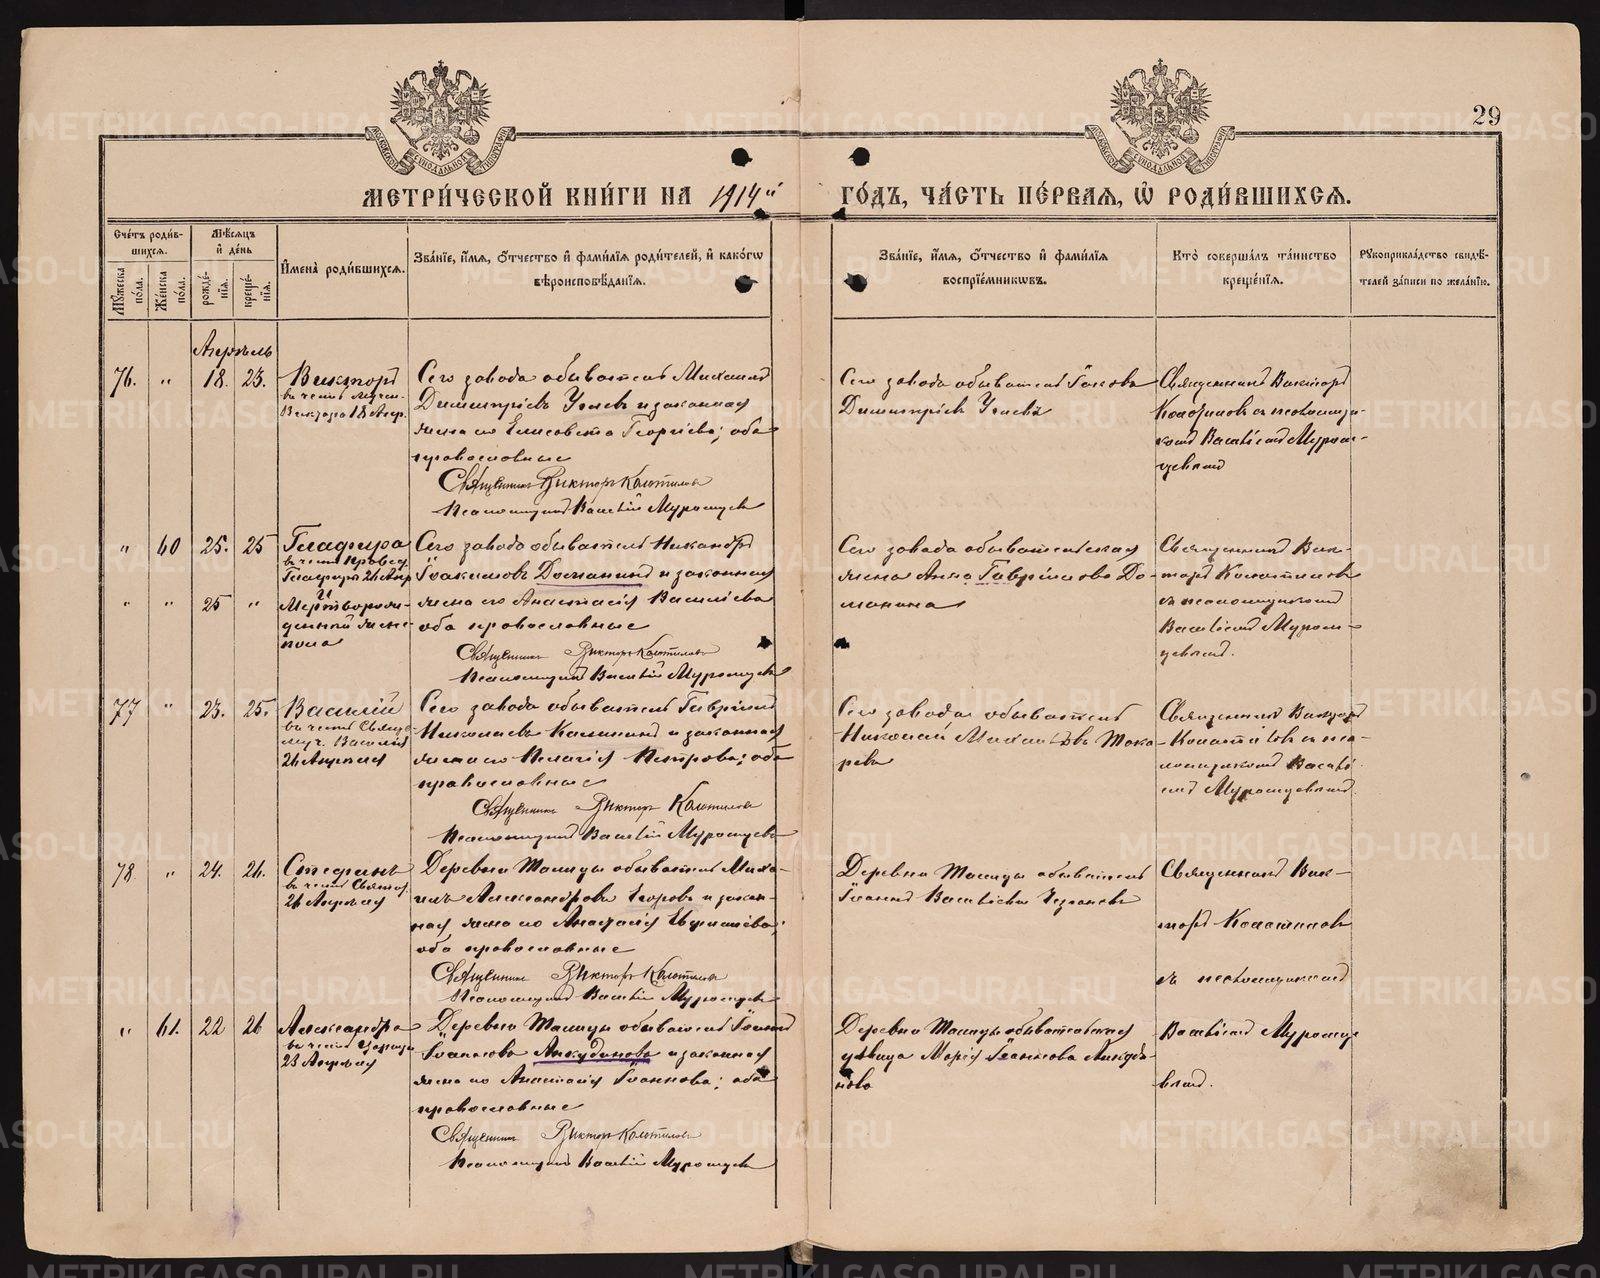 29
МЕТРИ́ЧЕСКОЙ КНИ́ГИ НА 1914й ГО́ДЪ, ЧА́СТЬ ПЕ́РВАЯ, Ѡ РОДИ́ВШИХСЯ.
Сче́тъ роди́в-
шихся.
Мꙋ́жеска по́ла.
Же́нска по́ла.
Мѣ́сяцъ и де́нь
рожде́-нїя.
креще́-нїя.
Имена̀ роди́вшихся.
Зва́нїе, и́мя, о́тчество и фами́лїя роди́телей, и како́гѡ
вѣроисповѣ́данїя.
Зва́нїе, и́мя, о́тчество и фами́лїя
воспрїе́мникѡвъ.
Кто̀ соверша́лъ та́инство
креще́нїя.
Рꙋкоприкла́дство свидѣ́-
телей за́писи по жела́нїю.
Апрѣль
76. " 18. 23. Викторъ
въ честь мучен.
Виктора 18 Апр.
Сего завода обыватель Михаилъ
Димитріевъ и законная
жена его Елисавета Георгіева; оба
православные
Священникъ Викторъ Колотиловъ
Псаломщикъ Василій Муромцевъ
Сего завода обыватель Іаковъ
Димитріевъ
Священникъ Викторъ
Колотиловъ съ псаломщи-
комъ Василіемъ Муром-
цевымъ
" 60 25. 25 Глафира
въ честь правед.
Глафиры 26 Апр
и
" " 25 " Мертворож-
денный жен.
пола
Сего завода обыватель Никандръ
Іоакимовъ Доманинъ и законная
жена его Анастасія Василіева
оба православные
Священникъ Викторъ Колотиловъ
Псаломщикъ Василій Муромцевъ
Сего завода обывательская
жена Анна Гавріилова До-
манина
Священникъ Вик-
торъ Колотиловъ
съ псаломщикомъ
Василіемъ Муром-
цевымъ.
77 " 23. 25. Василій
въ честь Священ
муч. Василія
26 Апрѣля
Сего завода обыватель Гавріилъ
Николаевъ Калининъ и законная
жена его Пелагія Петрова; оба
православные
Священникъ Викторъ Колотиловъ
Псаломщикъ Василій Муромцевъ
Сего завода обыватель
Николай Михаиловъ Тока-
ревъ
Священникъ Викторъ
Колотиловъ съ пса-
ломщикомъ Василі-
емъ Муромцевымъ.
78. " 24. 26. Стефанъ
въ честь Святит.
26 Апрѣля
Деревни Талицы обыватель Миха-
илъ Александровъ Егоровъ и закон-
ная жена его Анастасія;
оба православные
Священникъ Викторъ Колотиловъ
Псаломщикъ Василій Муромцевъ
Деревни Талицы обыватель
Іоаннъ Василіевъ
Священникъ Вик-
торъ Колотиловъ
съ псаломщикомъ
Василіемъ Муромце-
вымъ.
" 61. 22 26 Александра
въ честь Царицы
23 Апрѣля
Деревни Талицы обыватель Іоаннъ
Іоанновъ Анкудиновъ и законная
жена его Анастасія Іоаннова; оба
православные
Священникъ Викторъ Колотиловъ
Псаломщикъ Василій Муромцевъ
Деревни Талицы обывательская
дѣвица Марія Іоаннова Анкуди-
нова
METRIKI.GASO-URAL.RU